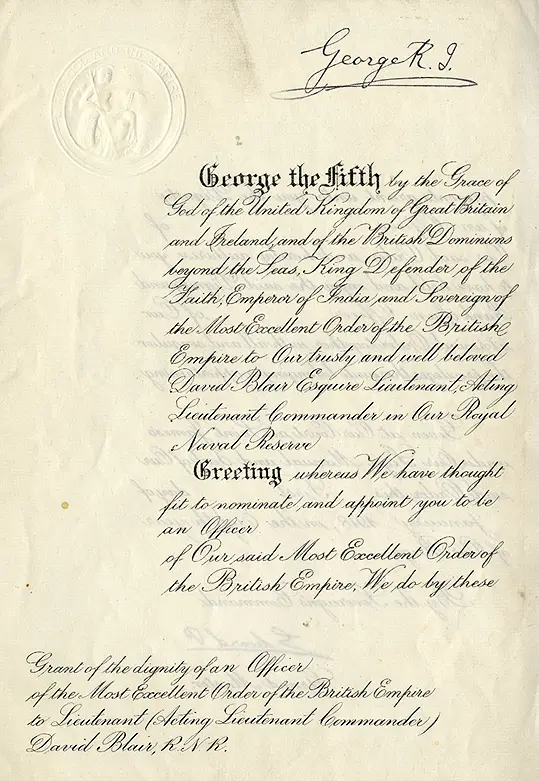 George R. I.
George the Fifth by the Grace of
God of the United Kingdom of Great Britain
and Ireland, and of the British Dominions
beyond the Seas, King Defender of the
Faith, Emperor of India and Sovereign of
the Most Excellent Order of the British
Empire to Our trusty and well beloved
David Blair Esquire Lieutenant, Acting
Lieutenant Commander in Our Royal
Naval Reserve
Greeting whereas We have thought
fit to nominate and appoint you to be
an Officer
of Our said Most Excellent Order of
the British Empire, We do by these
Grant of the dignity of an Officer
of the Most Excellent Order of the British Empire
to Lieutenant (Acting Lieutenant Commander)
David Blair, R.N.R.